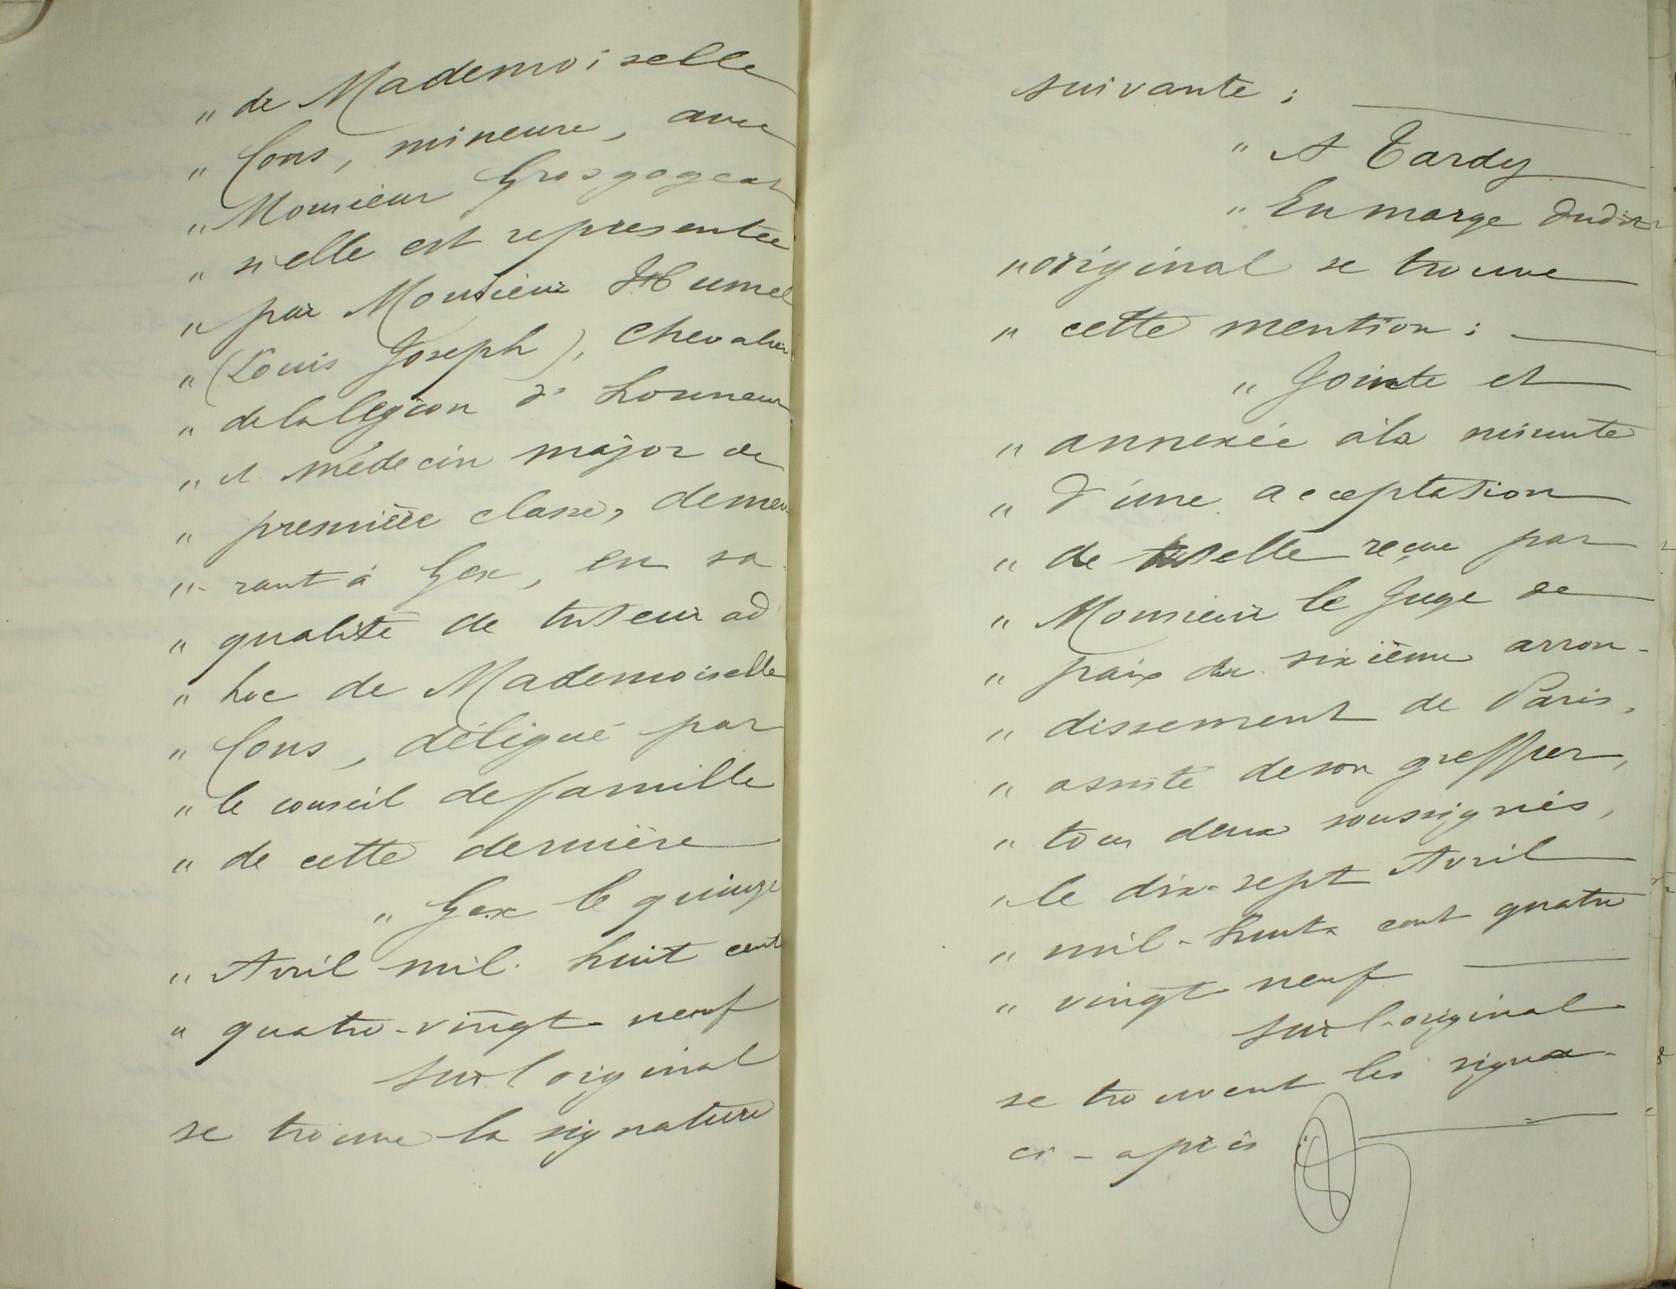 " de Mademoiselle
" Cons, mineure, avec
" Monsieur Grosgogeat
" si elle est représentée
" par Monsieur Humel
" (Louis Joseph), chevalier
" de la légion d'honneur
" et médecin major de
" première classe, demeu
" - rant à Gex, en sa
" qualité de tuteur ad
" hoc de Mademoiselle
" Cons, délégué par
" le conseil de famille
" de cette dernière
" Gex le quinze
" Avril mil huit cent
" quatre-vingt neuf
Sur l'original
se trouve la signature
suivante :
" A Tardy
" En marge dudit
" original se trouve
" cette mention :
" Jointe et
" annexée à la minute
" d'une acceptation
" de tutelle reçue par
" Monsieur le Juge de
" paix du sixième arron-
" dissement de Paris,
" assisté de son greffier,
" tous deux soussignés,
" le dix-sept Avril
" mil-huit cent quatre
" vingt neuf
Sur l'original
se trouvent les signa-
ci-après :